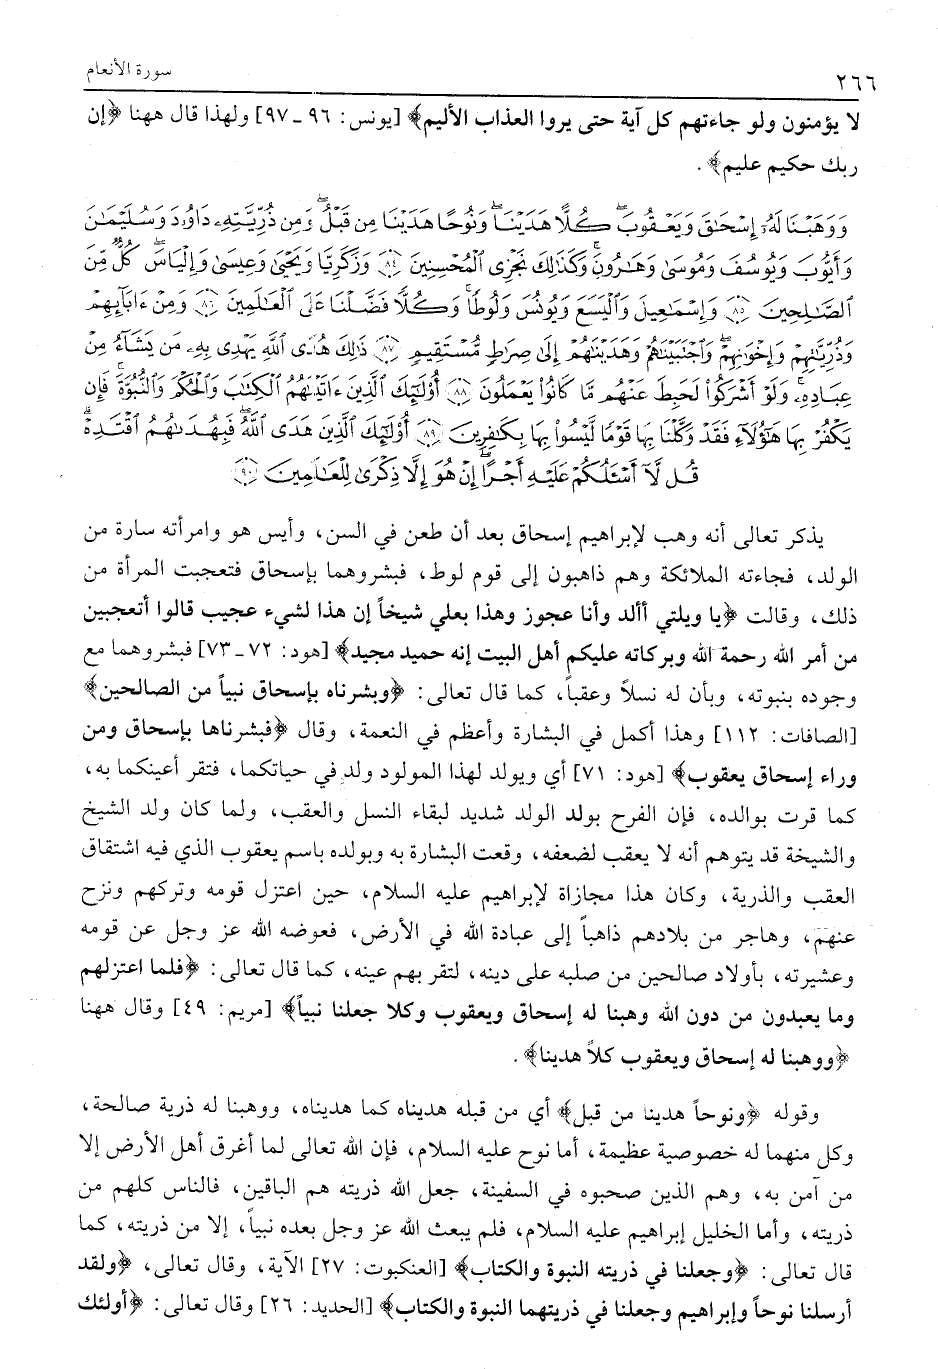 ٢٦٦ سورة الأنعام
لا يؤمنون ولو جاءتهم كل آية حتى يروا العذاب الأليم﴾ [يونس: ٩٦ ـ ٩٧] ولهذا قال ههنا ﴿إن
ربك حكيم عليم﴾ .
وَوَهَبْنَا لَهُۥٓ إِسْحَٰقَ وَيَعْقُوبَ ۚ كُلًّا هَدَيْنَا ۚ وَنُوحًا هَدَيْنَا مِن قَبْلُ ۖ وَمِن ذُرِّيَّتِهِۦ دَاوُۥدَ وَسُلَيْمَٰنَ
وَأَيُّوبَ وَيُوسُفَ وَمُوسَىٰ وَهَٰرُونَ ۚ وَكَذَٰلِكَ نَجْزِى ٱلْمُحْسِنِينَ ﴿٨٤﴾ وَزَكَرِيَّا وَيَحْيَىٰ وَعِيسَىٰ وَإِلْيَاسَ ۖ كُلٌّ مِّنَ
ٱلصَّٰلِحِينَ ﴿٨٥﴾ وَإِسْمَٰعِيلَ وَٱلْيَسَعَ وَيُونُسَ وَلُوطًا ۚ وَكُلًّا فَضَّلْنَا عَلَى ٱلْعَٰلَمِينَ ﴿٨٦﴾ وَمِنْ ءَابَآئِهِمْ
وَذُرِّيَّٰتِهِمْ وَإِخْوَٰنِهِمْ ۖ وَٱجْتَبَيْنَٰهُمْ وَهَدَيْنَٰهُمْ إِلَىٰ صِرَٰطٍ مُّسْتَقِيمٍ ﴿٨٧﴾ ذَٰلِكَ هُدَى ٱللَّهِ يَهْدِى بِهِۦ مَن يَشَآءُ مِنْ
عِبَادِهِۦ ۚ وَلَوْ أَشْرَكُوا۟ لَحَبِطَ عَنْهُم مَّا كَانُوا۟ يَعْمَلُونَ ﴿٨٨﴾ أُو۟لَٰٓئِكَ ٱلَّذِينَ ءَاتَيْنَٰهُمُ ٱلْكِتَٰبَ وَٱلْحُكْمَ وَٱلنُّبُوَّةَ ۚ فَإِن
يَكْفُرْ بِهَا هَٰٓؤُلَآءِ فَقَدْ وَكَّلْنَا بِهَا قَوْمًا لَّيْسُوا۟ بِهَا بِكَٰفِرِينَ ﴿٨٩﴾ أُو۟لَٰٓئِكَ ٱلَّذِينَ هَدَى ٱللَّهُ ۖ فَبِهُدَىٰهُمُ ٱقْتَدِهْ ۗ
قُل لَّآ أَسْـَٔلُكُمْ عَلَيْهِ أَجْرًا ۖ إِنْ هُوَ إِلَّا ذِكْرَىٰ لِلْعَٰلَمِينَ ﴿٩٠﴾
يذكر تعالى أنه وهب لإبراهيم إسحاق بعد أن طعن في السن، وأيس هو وامرأته سارة من
الولد، فجاءته الملائكة وهم ذاهبون إلى قوم لوط، فبشروهما بإسحاق فتعجبت المرأة من
ذلك، وقالت ﴿يا ويلتي أألد وأنا عجوز وهذا بعلي شيخاً إن هذا لشيء عجيب قالوا أتعجبين
من أمر الله رحمة الله وبركاته عليكم أهل البيت إنه حميد مجيد﴾ [هود: ٧٢ ـ ٧٣] فبشروهما مع
وجوده بنبوته، وبأن له نسلاً وعقباً، كما قال تعالى: ﴿وبشرناه بإسحاق نبياً من الصالحين﴾
[الصافات: ١١٢] وهذا أكمل في البشارة وأعظم في النعمة، وقال ﴿فبشرناها بإسحاق ومن
وراء إسحاق يعقوب﴾ [هود: ٧١] أي ويولد لهذا المولود ولد في حياتكما، فتقر أعينكما به،
كما قرت بوالده، فإن الفرح بولد الولد شديد لبقاء النسل والعقب، ولما كان ولد الشيخ
والشيخة قد يتوهم أنه لا يعقب لضعفه، وقعت البشارة به وبولده باسم يعقوب الذي فيه اشتقاق
العقب والذرية، وكان هذا مجازاة لإبراهيم عليه السلام، حين اعتزل قومه وتركهم ونزح
عنهم، وهاجر من بلادهم ذاهباً إلى عبادة الله في الأرض، فعوضه الله عز وجل عن قومه
وعشيرته، بأولاد صالحين من صلبه على دينه، لتقر بهم عينه، كما قال تعالى: ﴿فلما اعتزلهم
وما يعبدون من دون الله وهبنا له إسحاق ويعقوب وكلا جعلنا نبياً﴾ [مريم: ٤٩] وقال ههنا
﴿ووهبنا له إسحاق ويعقوب كلاً هدينا﴾ .
وقوله ﴿ونوحاً هدينا من قبل﴾ أي من قبله هديناه كما هديناه، ووهبنا له ذرية صالحة،
وكل منهما له خصوصية عظيمة، أما نوح عليه السلام، فإن الله تعالى لما أغرق أهل الأرض إلا
من آمن به، وهم الذين صحبوه في السفينة، جعل الله ذريته هم الباقين، فالناس كلهم من
ذريته، وأما الخليل إبراهيم عليه السلام، فلم يبعث الله عز وجل بعده نبياً، إلا من ذريته، كما
قال تعالى: ﴿وجعلنا في ذريته النبوة والكتاب﴾ [العنكبوت: ٢٧] الآية، وقال تعالى، ﴿ولقد
أرسلنا نوحاً وإبراهيم وجعلنا في ذريتهما النبوة والكتاب﴾ [الحديد: ٢٦] وقال تعالى: ﴿أولئك